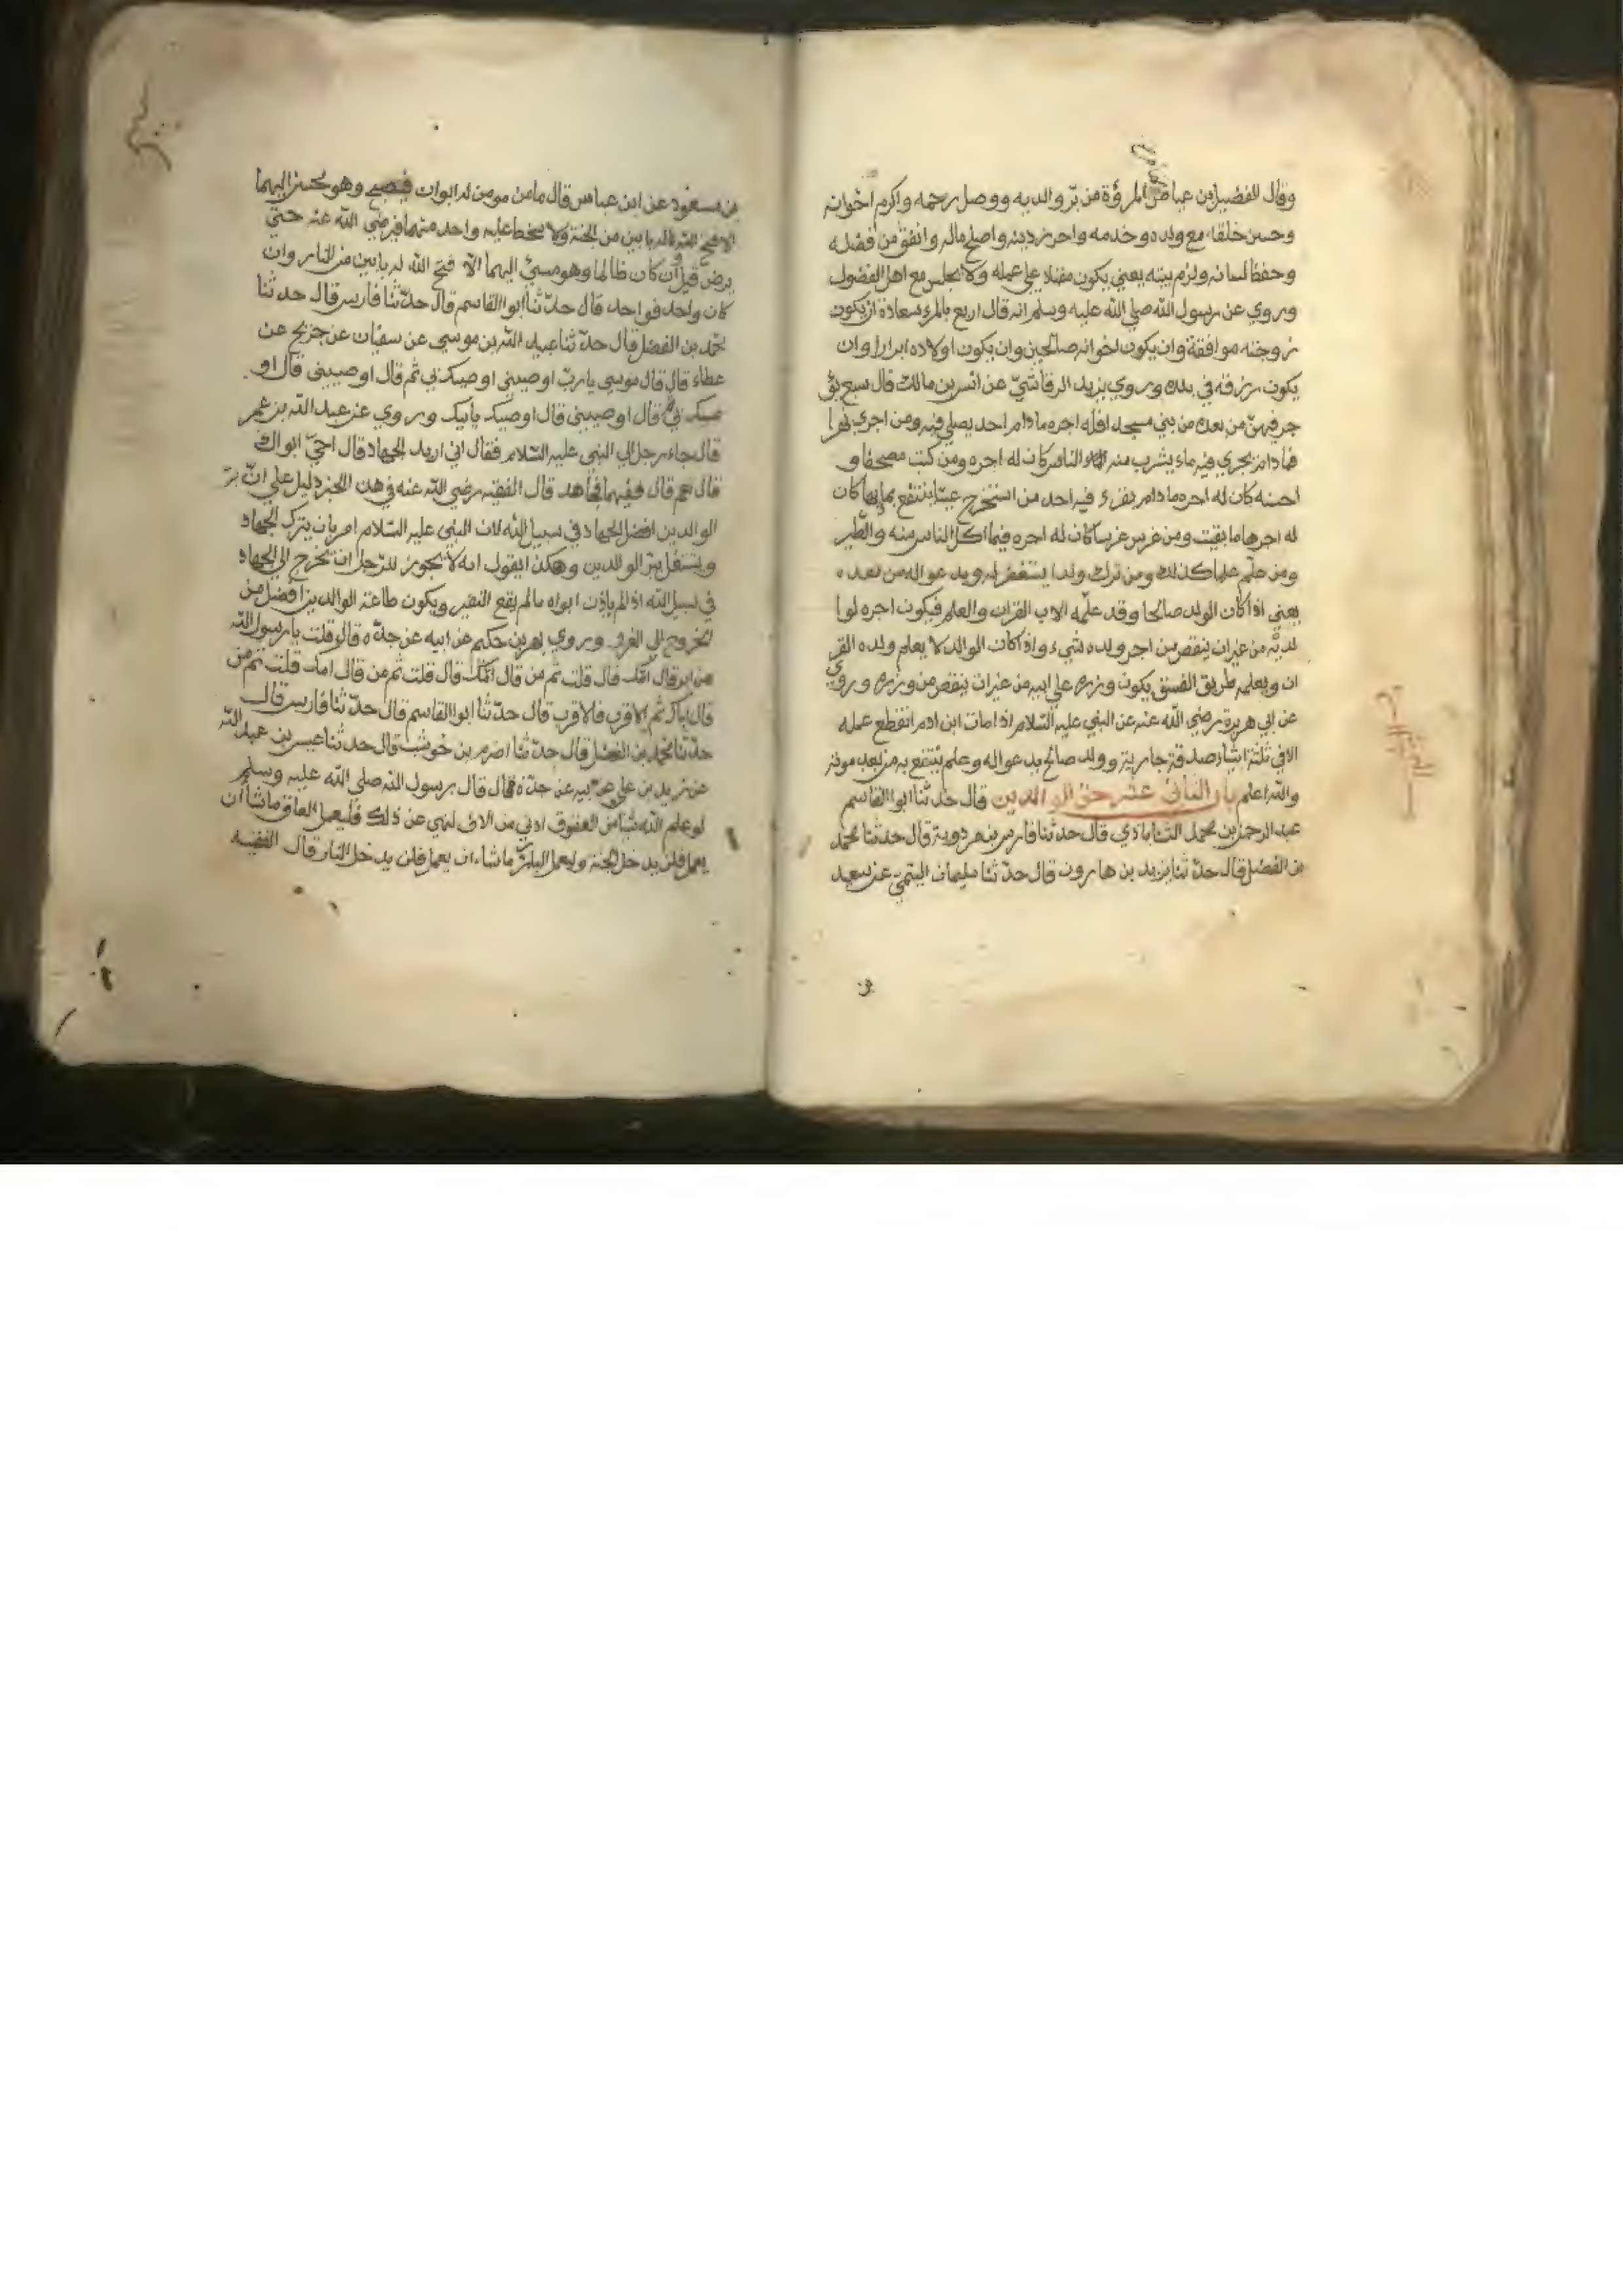 وقال الفضيل بن عياض المرؤة من بر والديه ووصل رحمه واكرم اخوانه
وحسن خلقه مع ولده وخدمه واحرز دينه واصلح ماله وانفق من فضله
وحفظ لسانه ولزم بيته يعني يكون مقبلا علي عمله ولا يجلس مع اهل الفضول
وروي عن رسول الله صلي الله عليه وسلم انه قال اربع بالمرء سعادة ان يكون
زوجته موافقة وان يكون اخوانه صالحين وان يكون اولاده ابرارا وان
يكون رزقه في بلده وروي يزيد الرقاشيّ عن انس بن مالك قال سبع يؤ
جر فيهنّ من بعده من بني مسجدا فله اجره ما دام احد يصلي فيه ومن اجري نهرا
فما دام يجري فيه ماء يشرب منه الناس كان له اجره ومن كتب مصحفا و
احسنه كان له اجره ما دام يقرء فيه احد من استخرج عينا ينتفع بمايها كان
له اجرها ما بقيت ومن غرس غرسا كان له اجره فيما اكل الناس منه والطّير
ومن علّم علما كذلك ومن ترك ولدا يستغفر له ويدعوا له من بعده
يعني اذا كان الولد صالحا وقد علّمه الاب القران والعلم فيكون اجره لوا
لديه من غير ان ينقص من اجر ولده شيء واذا كان الوالد لا يعلم ولده القر
ان ويعلمه طريق الفسق يكون وزره علي ابيه من غير ان ينقص من وزره وروي
عن ابي هريرة رضي الله عنه عن النبي عليه السّلام اذا مات ابن ادم انقطع عمله
الا في ثلثة اشياء صدقة جارية وولد صالح يدعوا له وعلم ينتفع به من بعد موته
والله اعلم باب الثاني عشر حق الوالدين قال حدثنا ابوا القاسم
عبد الرحمن بن محمد قال حدثنا فارس بن مردوية قال حدثنا محمّد
بن الفضل قال حدّثنا يزيد بن هارون قال حدّثنا سليمان التيمّي عن سعد
بن مسعود عن ابن عباس قال ما من مومن له ابوان فيصبح وهو محسن اليهما
الا فتح الله له بابين من الجنة ولا يسخط عليه واحد منهما فيرضي الله عنه حتي
يرضي قيل ان كان ظالما وهو مسئ اليهما الا فتح الله له بابين من النار وان
كان واحد فواحد قال حدّثنا ابوا القاسم قال حدّثنا فارس قال حدثنا
محمّد بن الفضل قال حدّثنا عبيد الله بن موسي عن سفيان عن جريح عن
عطاء قال قال موسي يا ربّ اوصيني اوصيك بي ثم قال اوصيني قال او
صيك بي قال اوصيني قال اوصيك بابيك وروي عن عبد الله بن عمر
قال جاء رجل الي النبي عليه السّلام فقال اني اريد الجهاد قال احيّ ابواك
قال نعم قال ففيهما فجاهد قال الفقيه رضي الله عنه في هذا الخبر دليل علي انّ برّ
الوالدين افضل الجهاد في سبيل الله لان النبي عليه السّلام امر بان يترك الجهاد
ويشتغل ببرّ الوالدين وهكذا يقول انه لا يجوز للرّجل ان يخرج الي الجهاد
في سبيل الله اذا لم ياذن ابواه ما لم يقع النفير ويكون طاعة الوالدين افضل من
الخروج الي الغزو وروي بهز بن حكيم عن ابيه عن جدّه قال قلت يا رسول الله
من ابر قال امّك قال قلت ثم من قال امّك قال قلت ثم من قال امك قلت ثم من
قال اباك ثم الاقرب فالاقرب قال حدّثنا ابوا القاسم قال حدّثنا فارس قال
حدّثنا محمد بن الفضل قال حدّثنا اصرم بن حوشب قال حدثنا عيسي بن عبد الله
عن زيد بن علي عن ابيه عن جدّه قال قال رسول الله صلي الله عليه وسلم
لو علم الله شيئا من العقوق ادني من الاف لنهي عن ذلك فليعمل العاق ما شاء ان
يعمل فلن يدخل الجنة وليعمل البارّ ما شاء ان يعمل فلن يدخل النار قال الفقيه